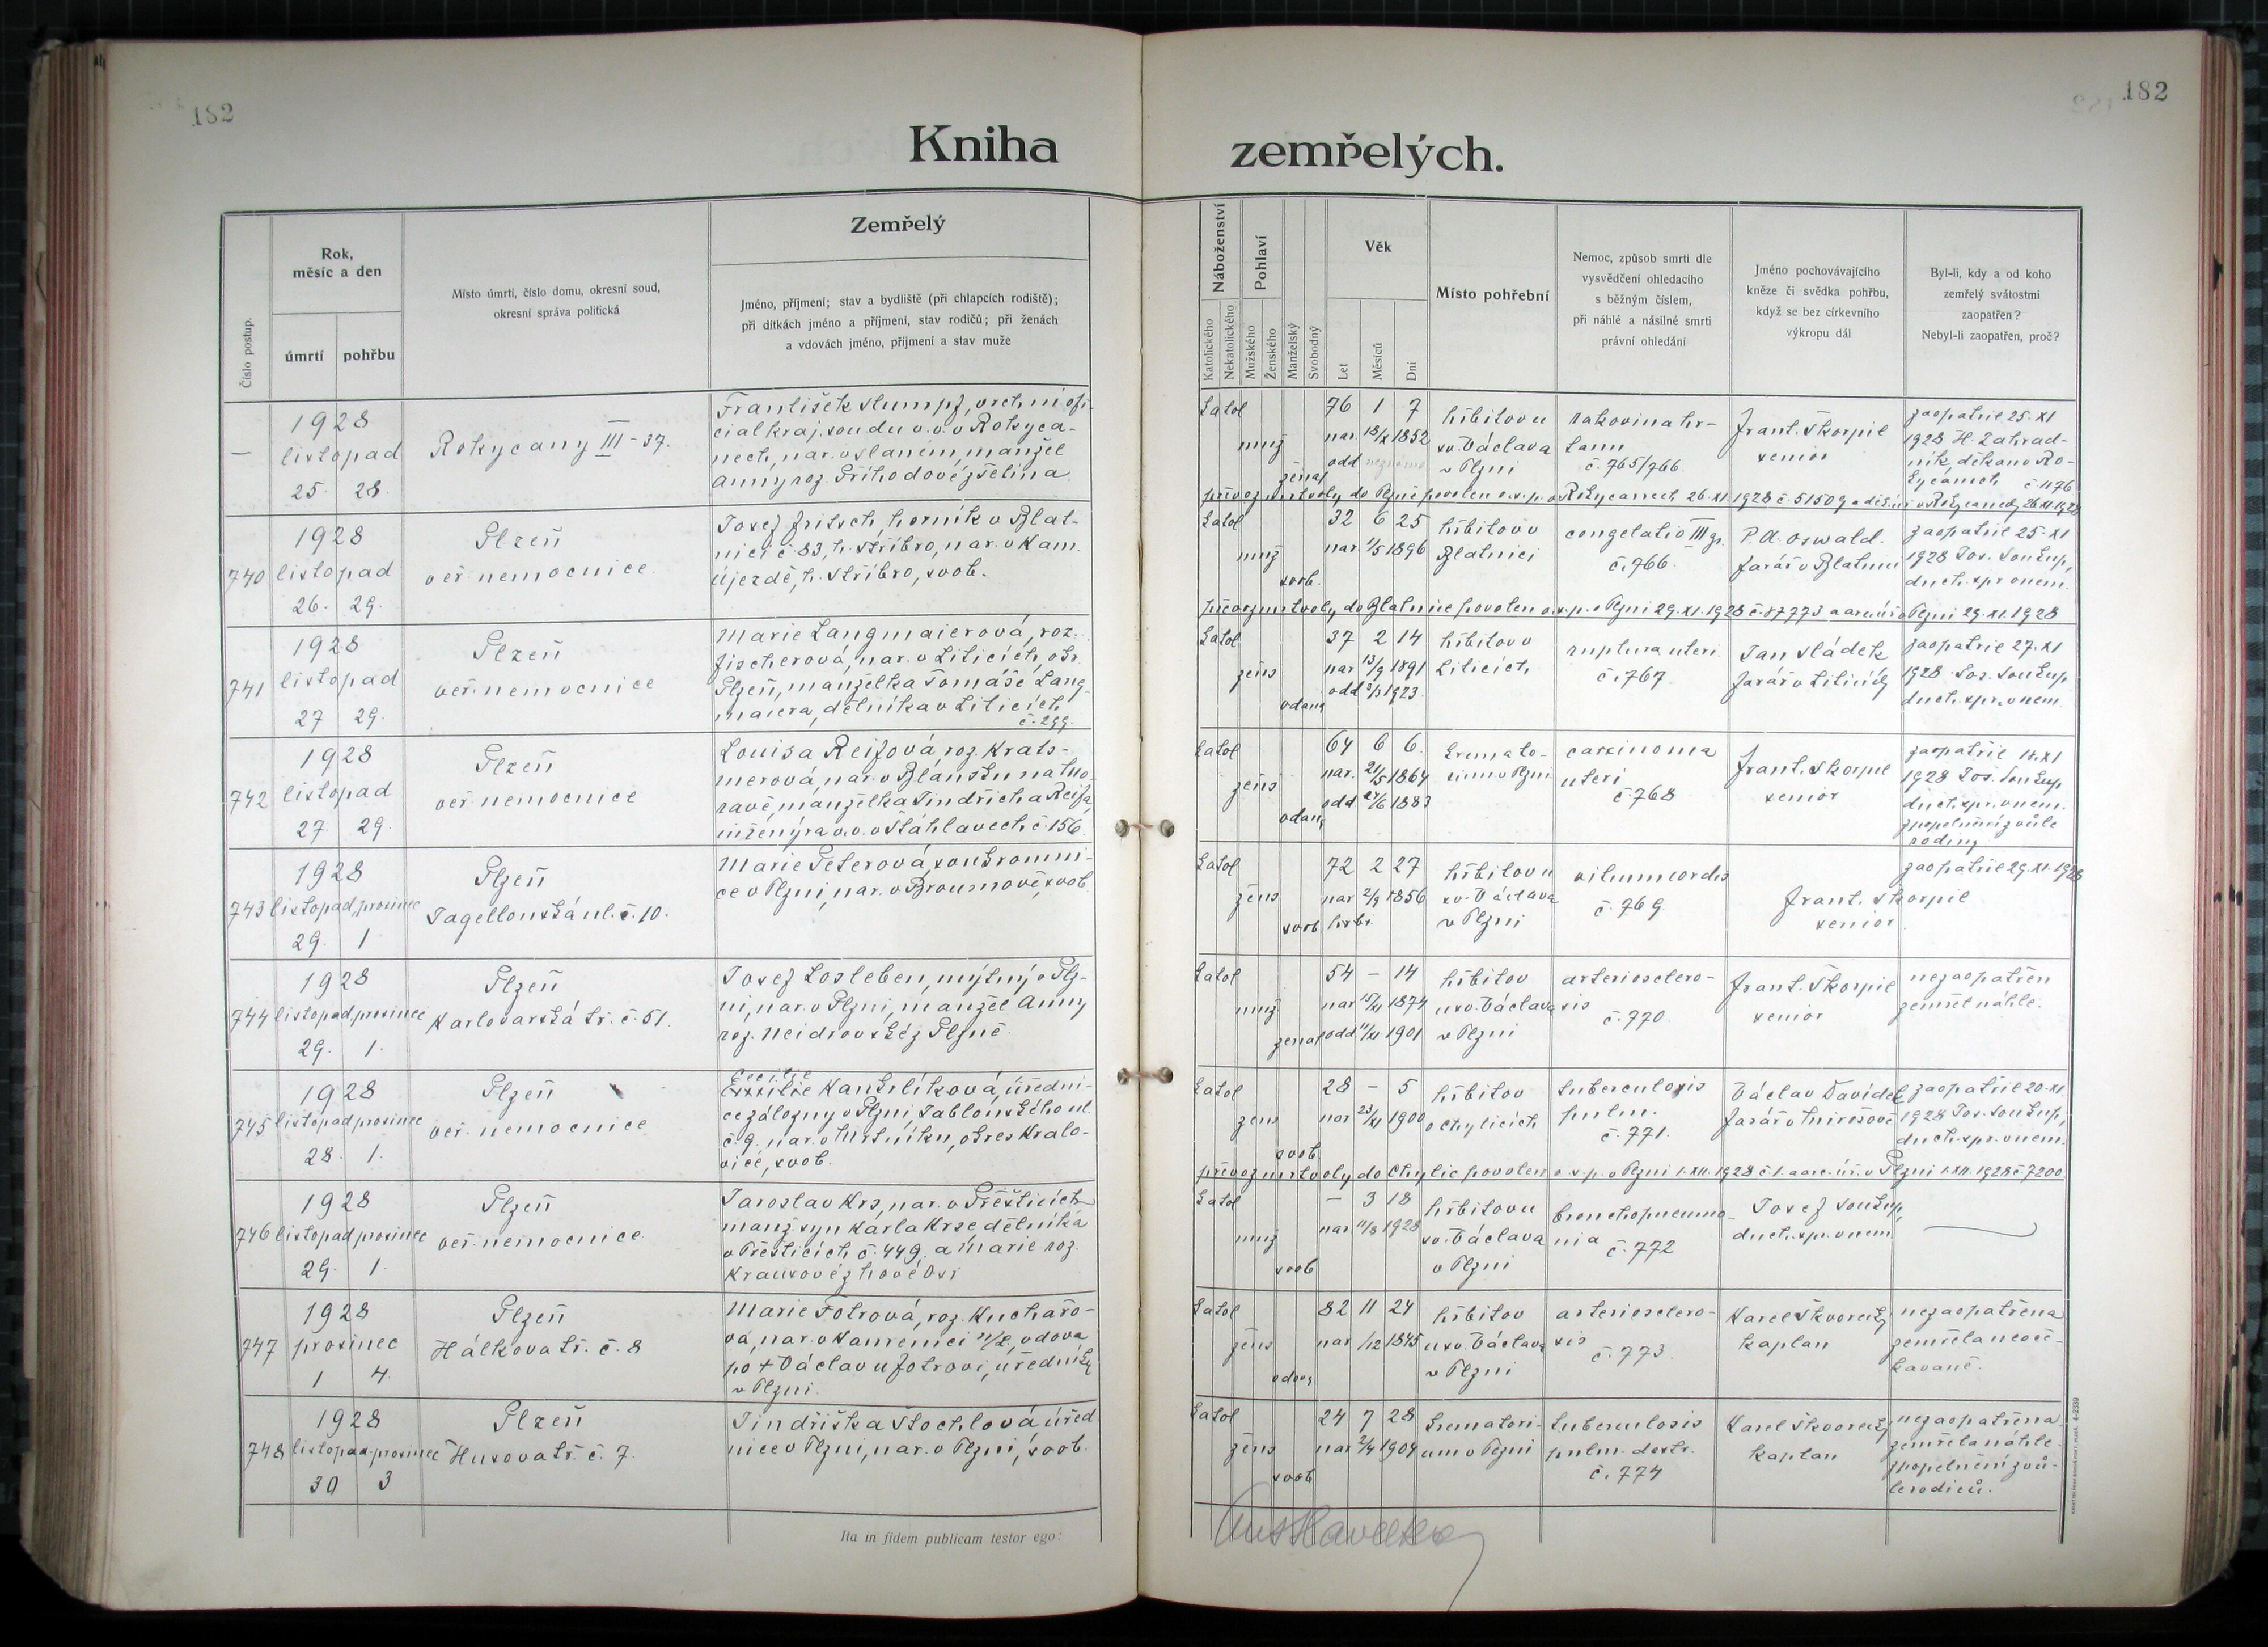 182
182
Kniha
zemřelých.
Číslo postup.
Rok,
měsíc a den
úmrtí
pohřbu
Místo úmrtí, číslo domu, okresní soud,
okresní správa politická
Zemřelý
Jméno, příjmení; stav a bydliště (při chlapcích rodiště);
při dítkách jméno a příjmení, stav rodičů; při ženách
a vdovách jméno, příjmení a stav muže
Náboženství
Katolického
Nekatolického
Pohlaví
Mužského
Ženského
Manželský
Svobodný
Věk
Let
Měsíců
Dní
Místo pohřební
Nemoc, způsob smrti dle
vysvědčení ohledacího
s běžným číslem,
při náhlé a násilné smrti
právní ohledání
Jméno pochovávajícího
kněze či svědka pohřbu,
když se bez církevního
výkropu dál
Byl-li, kdy a od koho
zemřelý svátostmi
zaopatřen?
Nebyl-li zaopatřen, proč?
—
1928
listopad
25. 28.
Rokycany III - 37.
František Stumpf, vrchní ofi-
ciál kraj. soudu v. v. v Rokyca-
nech, nar. v Slaném, manžel
Anny roz. Příhodové z Tetína
katol
muž
ženat
76 1 7
nar. 18/X 1852
odd neznámo
hřbitov u
sv. Václava
v Plzni
rakovina hr-
tanu
č. 765/766
Frant. Škorpil
senior
zaopatřil 25. XI
1928 H. Zahrad-
ník, děkan v Ro-
kycanech č. 1176
převoz mrtvoly do Plzně povolen o. s. p. v Rokycanech 26. XI. 1928 č. 51509 a děk. úř. v Rokycanech 26. XI. 1928
740
1928
listopad
26. 29.
Plzeň
veř. nemocnice.
Josef Fritsch, horník v Blat-
nici č. 83, h. Stříbro, nar. v Kam.
Újezdě, h. Stříbro, svob.
katol
muž
svob.
32 6 25
nar 1/5 1896
hřbitov v
Blatnici
congelatio III gr.
č. 766
P. A. Oswald.
farář v Blatnici
zaopatřil 25. XI
1928 Jos. Soukup,
duch. spr. v nem.
převoz mrtvoly do Blatnice povolen o. s. p. v Plzni 29. XI. 1928 č. 87773 a arc. úř. v Plzni 29. XI. 1928
741
1928
listopad
27 29.
Plzeň
veř. nemocnice
Marie Langmaierová, roz.
Fischerová, nar. v Liticích, okr.
Plzeň, manželka Tomáše Lang-
maiera, dělníka v Liticích
č. 299.
katol
žens
vdaná
37 2 14
nar 13/9 1891
odd 3/3 1923
hřbitov v
Liticích
ruptura uteri
č. 767
Jan Sládek
farář v Liticích
zaopatřil 27. XI
1928. Jos. Soukup
duch. spr. v nem.
742
1928
listopad
27. 29.
Plzeň
veř. nemocnice
Louisa Reifová, roz. Krats-
merová, nar. v Blansku na Mo-
ravě, manželka Jindřicha Reifa,
inženýra v. v. v Šťáhlavech č. 156
katol
žens
vdaná
64 6 6.
nar. 21/5 1864
odd 24/6 1883
kremato-
rium v Plzni
carcinoma
uteri
č. 768
Frant. Škorpil
senior
zaopatřil 14. XI
1928 Jos. Soukup
duch. spr. v nem.
zpopelnění z vůle
rodiny
743
1928
listopad prosinec
29. 1
Plzeň
Jagellonská ul. č. 10.
Marie Peterová, soukromni-
ce v Plzni, nar. v Broumově, svob
katol
žens
svob
72 2 27
nar 2/9 1856
hřbitov u
sv. Václava
v Plzni
vitium cordis
č. 769
Frant. Škorpil
senior
zaopatřil 29. XI. 1928
744
1928
listopad prosinec
29. 1.
Plzeň
Karlovarská tř. č. 51.
Josef Losleben, mýtný v Plz-
ni, nar. v Plzni, manžel Anny
roz. Neidrovské z Plzně.
katol
muž
ženat
54 – 14
nar 15/XI 1874
odd 11/XI 1901
hřbitov
u sv. Václava
v Plzni
arterioscloro-
sis
č. 770.
Frant. Škorpil
senior
nezaopatřen
zemřel náhle.
745
1928
listopad prosinec
28. 1.
Plzeň
veř. nemocnice
Cecilie
Kantrlíková, úředni-
ce záložny v Plzni, Jablonského ul.
č. 9. nar. v Mrtníku, okres Kralo-
vice, svob.
katol
žens
svob
28 – 5
nar 23/XI 1900
hřbitov
v Chylicích
tuberculosis
pulm.
č. 771.
Václav Davídek
farář v Hnírošově
zaopatřil 20. XI.
1928 Jos. Soukup,
duch. spr. v nem.
převoz mrtvoly do Chylic povolen o. s. p. v Plzni 1. XII. 1928 č. 1. a arc. úř. v Plzni 1. XII. 1928 č. 7200
746
1928
listopad prosinec
29. 1.
Plzeň
veř. nemocnice
Jaroslav Krs, nar. v Přešticích
manž. syn Karla Krse dělníka
v Přešticích č. 449. a Marie roz.
Krausové z Nové Vsi
katol
muž
svob
– 3 18
nar 11/8 1928
hřbitov u
sv. Václava
v Plzni
bronchopneumo-
nia č. 772
Josef Soukup,
duch. spr. v nem
747
1928
prosinec
1 4.
Plzeň
Hálkova tř. č. 8
Marie Fotrová, roz. Kuchařo-
vá, nar. v Kamenici n/L, vdova
po + Václavu Fotrovi, úředníku
v Plzni.
katol
žens
vdova
82 11 24
nar /12 1845
hřbitov
u sv. Václava
v Plzni
arterioscloro-
sis
č. 773.
Karel Škvorecký
kaplan
nezaopatřena
zemřela neoče-
kávaně.
748
1928
listopad prosinec
30 3
Plzeň
Husova tř. č. 7.
Jindřiška Štochlová, úřed-
nice v Plzni, nar. v Plzni, svob.
katol
žens
svob
24 7 28
nar 2/4 1904
kremator-
ium v Plzni
tuberculosis
pulm. dextr.
č. 774
Karel Škvorecký
kaplan
nezaopatřena
zemřela náhle.
zpopelnění z vů-
le rodičů.
Ita in fidem publicam testor ego: